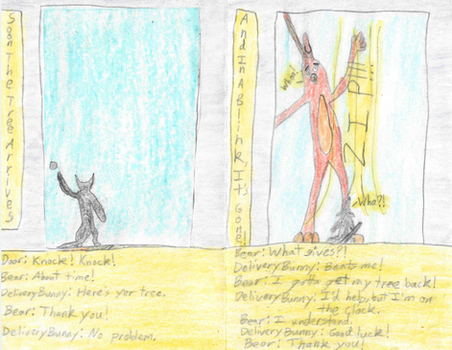 Soon The Tree Arrives
Door: Knock! Knock!
Bear: About time!
DeliveryBunny: Here's yer tree.
Bear: Thank you!
DeliveryBunny: No problem.
And In A Blink, It's Gone!
Wha!
ZIP!!!...
Wha?!
Bear: What gives?!
DeliveryBunny: Beats me!
Bear: I gotta get my tree back!
DeliveryBunny: I'd help, but I'm on
the clock.
Bear: I understand.
DeliveryBunny: Good luck!
Bear: Thank you!